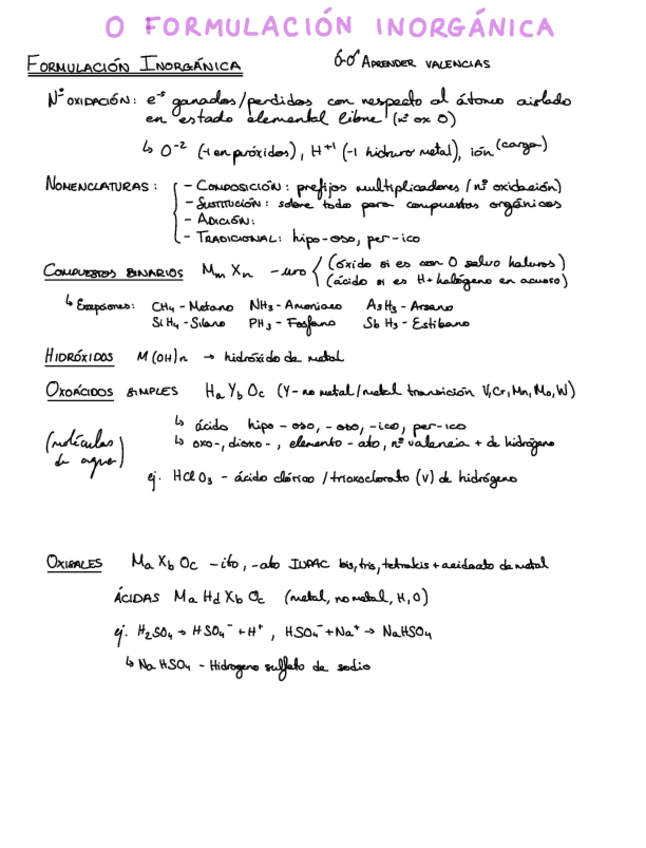 0 FORMULACIÓN INORGÁNICA
FORMULACIÓN INORGÁNICA
APRENDER VALENCIAS
Nº OXIDACIÓN: e⁻s ganados/perdidos con respecto al átomo aislado
en estado elemental libre (nº ox 0)
↳ O⁻² (-1 en peróxidos), H⁺¹ (-1 hidruro metal), ión (carga)
NOMENCLATURAS: - COMPOSICIÓN: prefijos multiplicadores / nº oxidación)
- SUSTITUCIÓN: sobre todo para compuestos orgánicos
- ADICIÓN:
- TRADICIONAL: hipo-oso, per-ico
COMPUESTOS BINARIOS MmXn -uro (óxido si es con O salvo haluros)
(ácido si es H + halógeno en acuoso)
↳ Excepciones: CH₄ - Metano NH₃ - Amoniaco AsH₃ - Arsano
SiH₄ - Silano PH₃ - Fosfano SbH₃ - Estibano
HIDRÓXIDOS M(OH)n → hidróxido de metal
OXOÁCIDOS SIMPLES HaYbOc (Y - no metal/metal transición V,Cr,Mn,Mo,W)
↳ ácido hipo - oso, - oso, -ico, per-ico
(moléculas de agua) ↳ oxo-, dioxo-, elemento - ato, nº valencia + de hidrógeno
ej. HClO₃ - ácido clórico / trioxoclorato (V) de hidrógeno
OXISALES MaXbOc -ito, -ato IUPAC bis, tris, tetrakis + de metal
ÁCIDAS MaHdXbOc (metal, no metal, H, O)
ej. H₂SO₄ → HSO₄⁻ + H⁺, HSO₄⁻ + Na⁺ → NaHSO₄
↳ NaHSO₄ - Hidrogeno sulfato de sodio